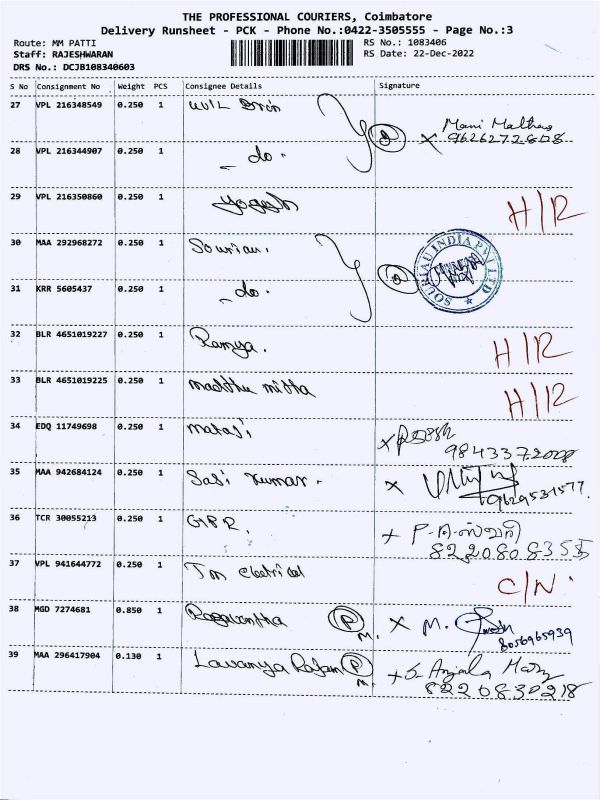 THE PROFESSIONAL COURIERS, Coimbatore
Delivery Runsheet - PCK - Phone No.:0422-3505555 - Page No.:3
Route: MM PATTI
RS No.: 1083406
Staff: RAJESHWARAN
RS Date: 22-Dec-2022
DRS No.: DCJB108340603
S No Consignment No Weight PCS Consignee Details Signature
27 VPL 216348549 0.250 1
Mani
9626272808
28 VPL 216344907 0.250 1 - do -
29 VPL 216350860 0.250 1 Yogesh H/R
30 MAA 292968272 0.250 1 Souriau.
SOURIAU INDIA PVT LTD
31 KRR 5605437 0.250 1 - do -
32 BLR 4651019227 0.250 1 Ramya. H/R
33 BLR 4651019225 0.250 1 Madhu mitha H/R
34 EDQ 11749698 0.250 1
9843372008
35 MAA 942684124 0.250 1 Sasi Kumar. X
9629531577
36 TCR 30055213 0.250 1 GPR.
8220808355
37 VPL 941644772 0.250 1 Tm electrical C/N
38 MGD 7274681 0.850 1 P M. X M.
8056965939
39 MAA 296417904 0.130 1 Lavanya Rajan P M. S. Anjala Mary
8220830218